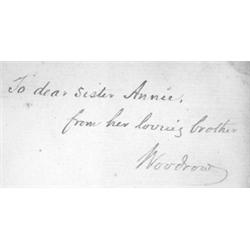 To dear sister Annie,
from her loving brother
Woodrow